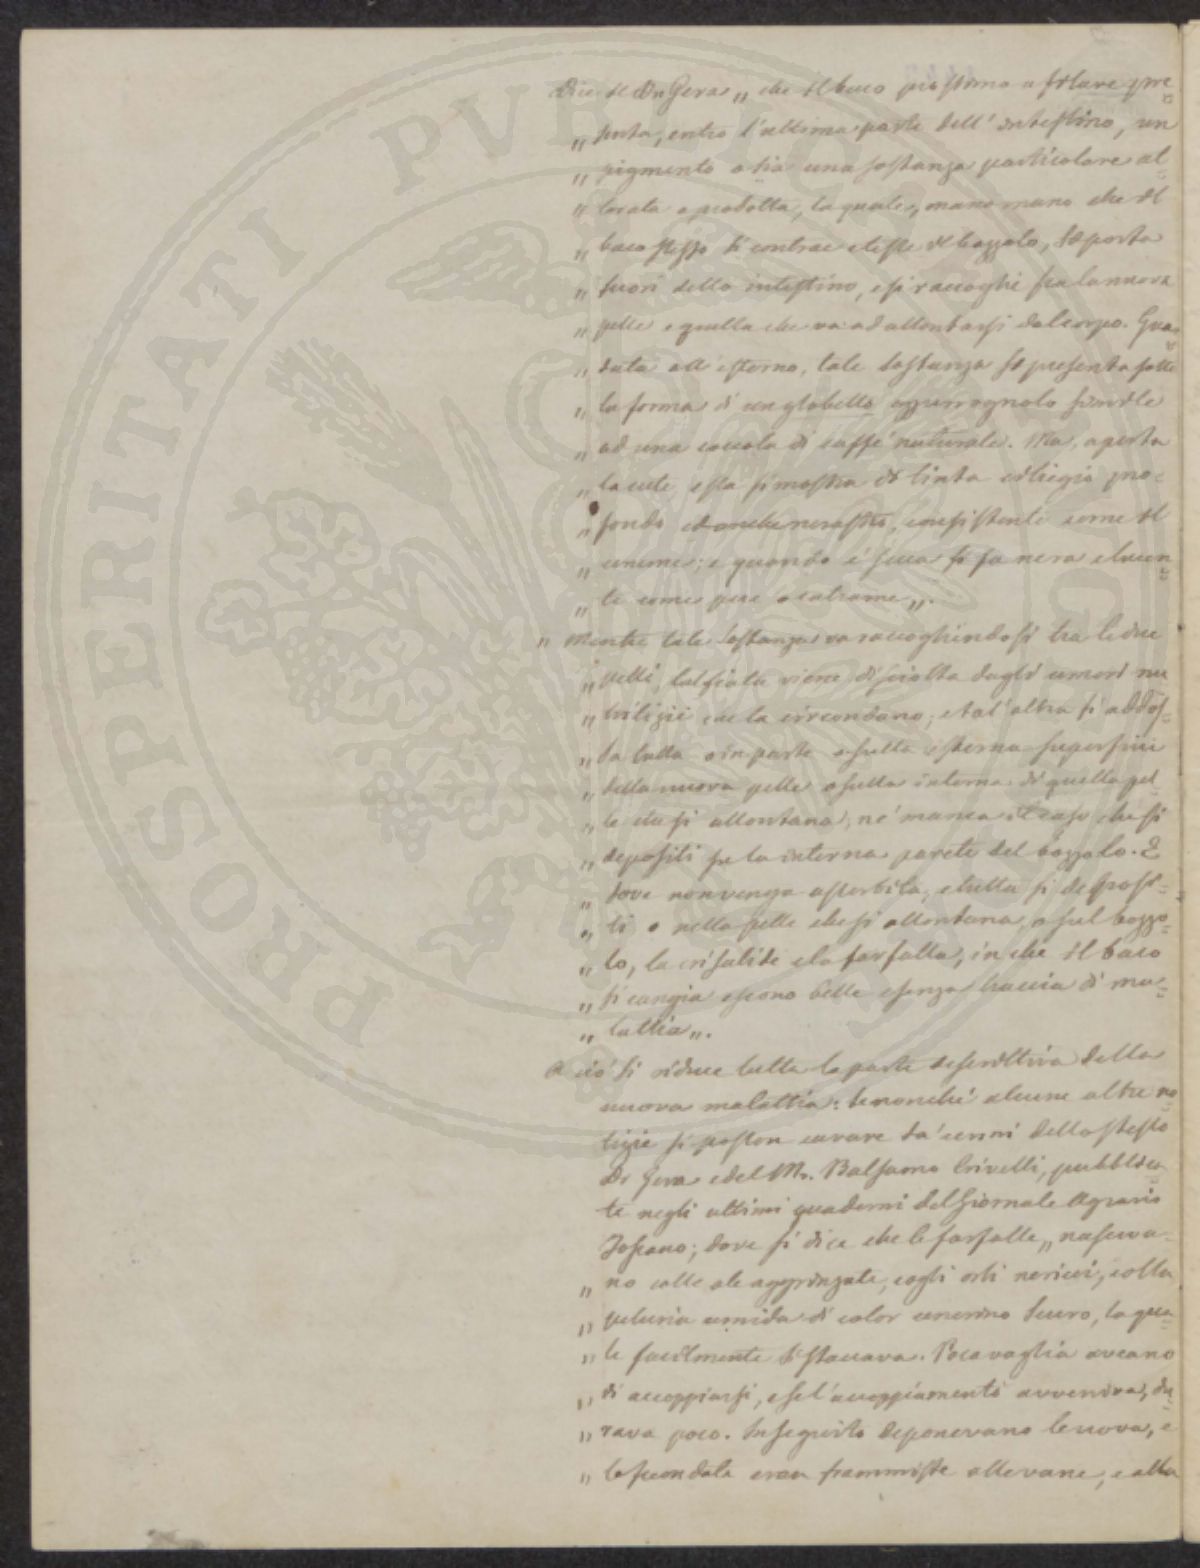 Dice il Dr. Gera „ che il baco prossimo a filare pre=
„ senta, entro l'ultima parte dell'intestino, un
„ pigmento o sia una sostanza particolare al=
„ terata o prodotta, la quale, mano mano che il
„ baco stesso si contrae e tesse il bozzolo, si porta
„ fuori dello intestino, e si raccoglie fra la nuova
„ pelle e quella che va ad allontarsi dal corpo. Gua=
„ data all'esterno, tale sostanza si presenta sotto
„ la forma di un globetto opperrognolo simile
„ ad una coccola di caffè naturale. Ma, aperta
„ la cute, essa si mostra di tinta ciliegia pro=
„ fondo ed anche nerastro, consistente come il
„ cerume; e quando è secca si fa nera e lucen=
„ te come pece o catrame „.
„ Mentre tale sostanza va raccogliendosi tra le due
„ pelli, talfiata viene disciolta dagli umori nu
„ trilizii che la circondano; e tal'altra si addos=
„ sa tutta o in parte o sulla esterna superficie
„ della nuova pelle o sulla interna di quella pel
„ le che si allontana, nè manca il caso che si
„ depositi su la interna parete del bozzolo. E
„ dove non venga assorbita, e tutta si deposi=
„ ti o nella pelle che si allontana, o sul bozzo=
„ lo, la crisalide e la farfalla, in che il baco
„ si cangia escono belle e senza traccia di ma=
„ lattia „.
A ciò si riduce tutta la parte descrittiva della
nuova malattia: se nonchè alcune altre no
tizie si posson cavare da' cenni dello stesso
Dr Gera e del Mr. Balsamo Crivelli, pubblica
te negli ultimi quaderni del Giornale Agrario
Toscano; dove si dice che le farfalle „ nasceva=
„ no colle ale aggrinzate, cogli orli nericci, colla
„ peluria umida di color cenerino scuro, la qua=
„ le facilmente si staccava. Poca voglia aveano
„ di accoppiarsi, e se l'accoppiamento avveniva, du=
„ rava poco. In seguito deponevano le uova, e
„ le fecondate eran frammiste alle vane, e alla